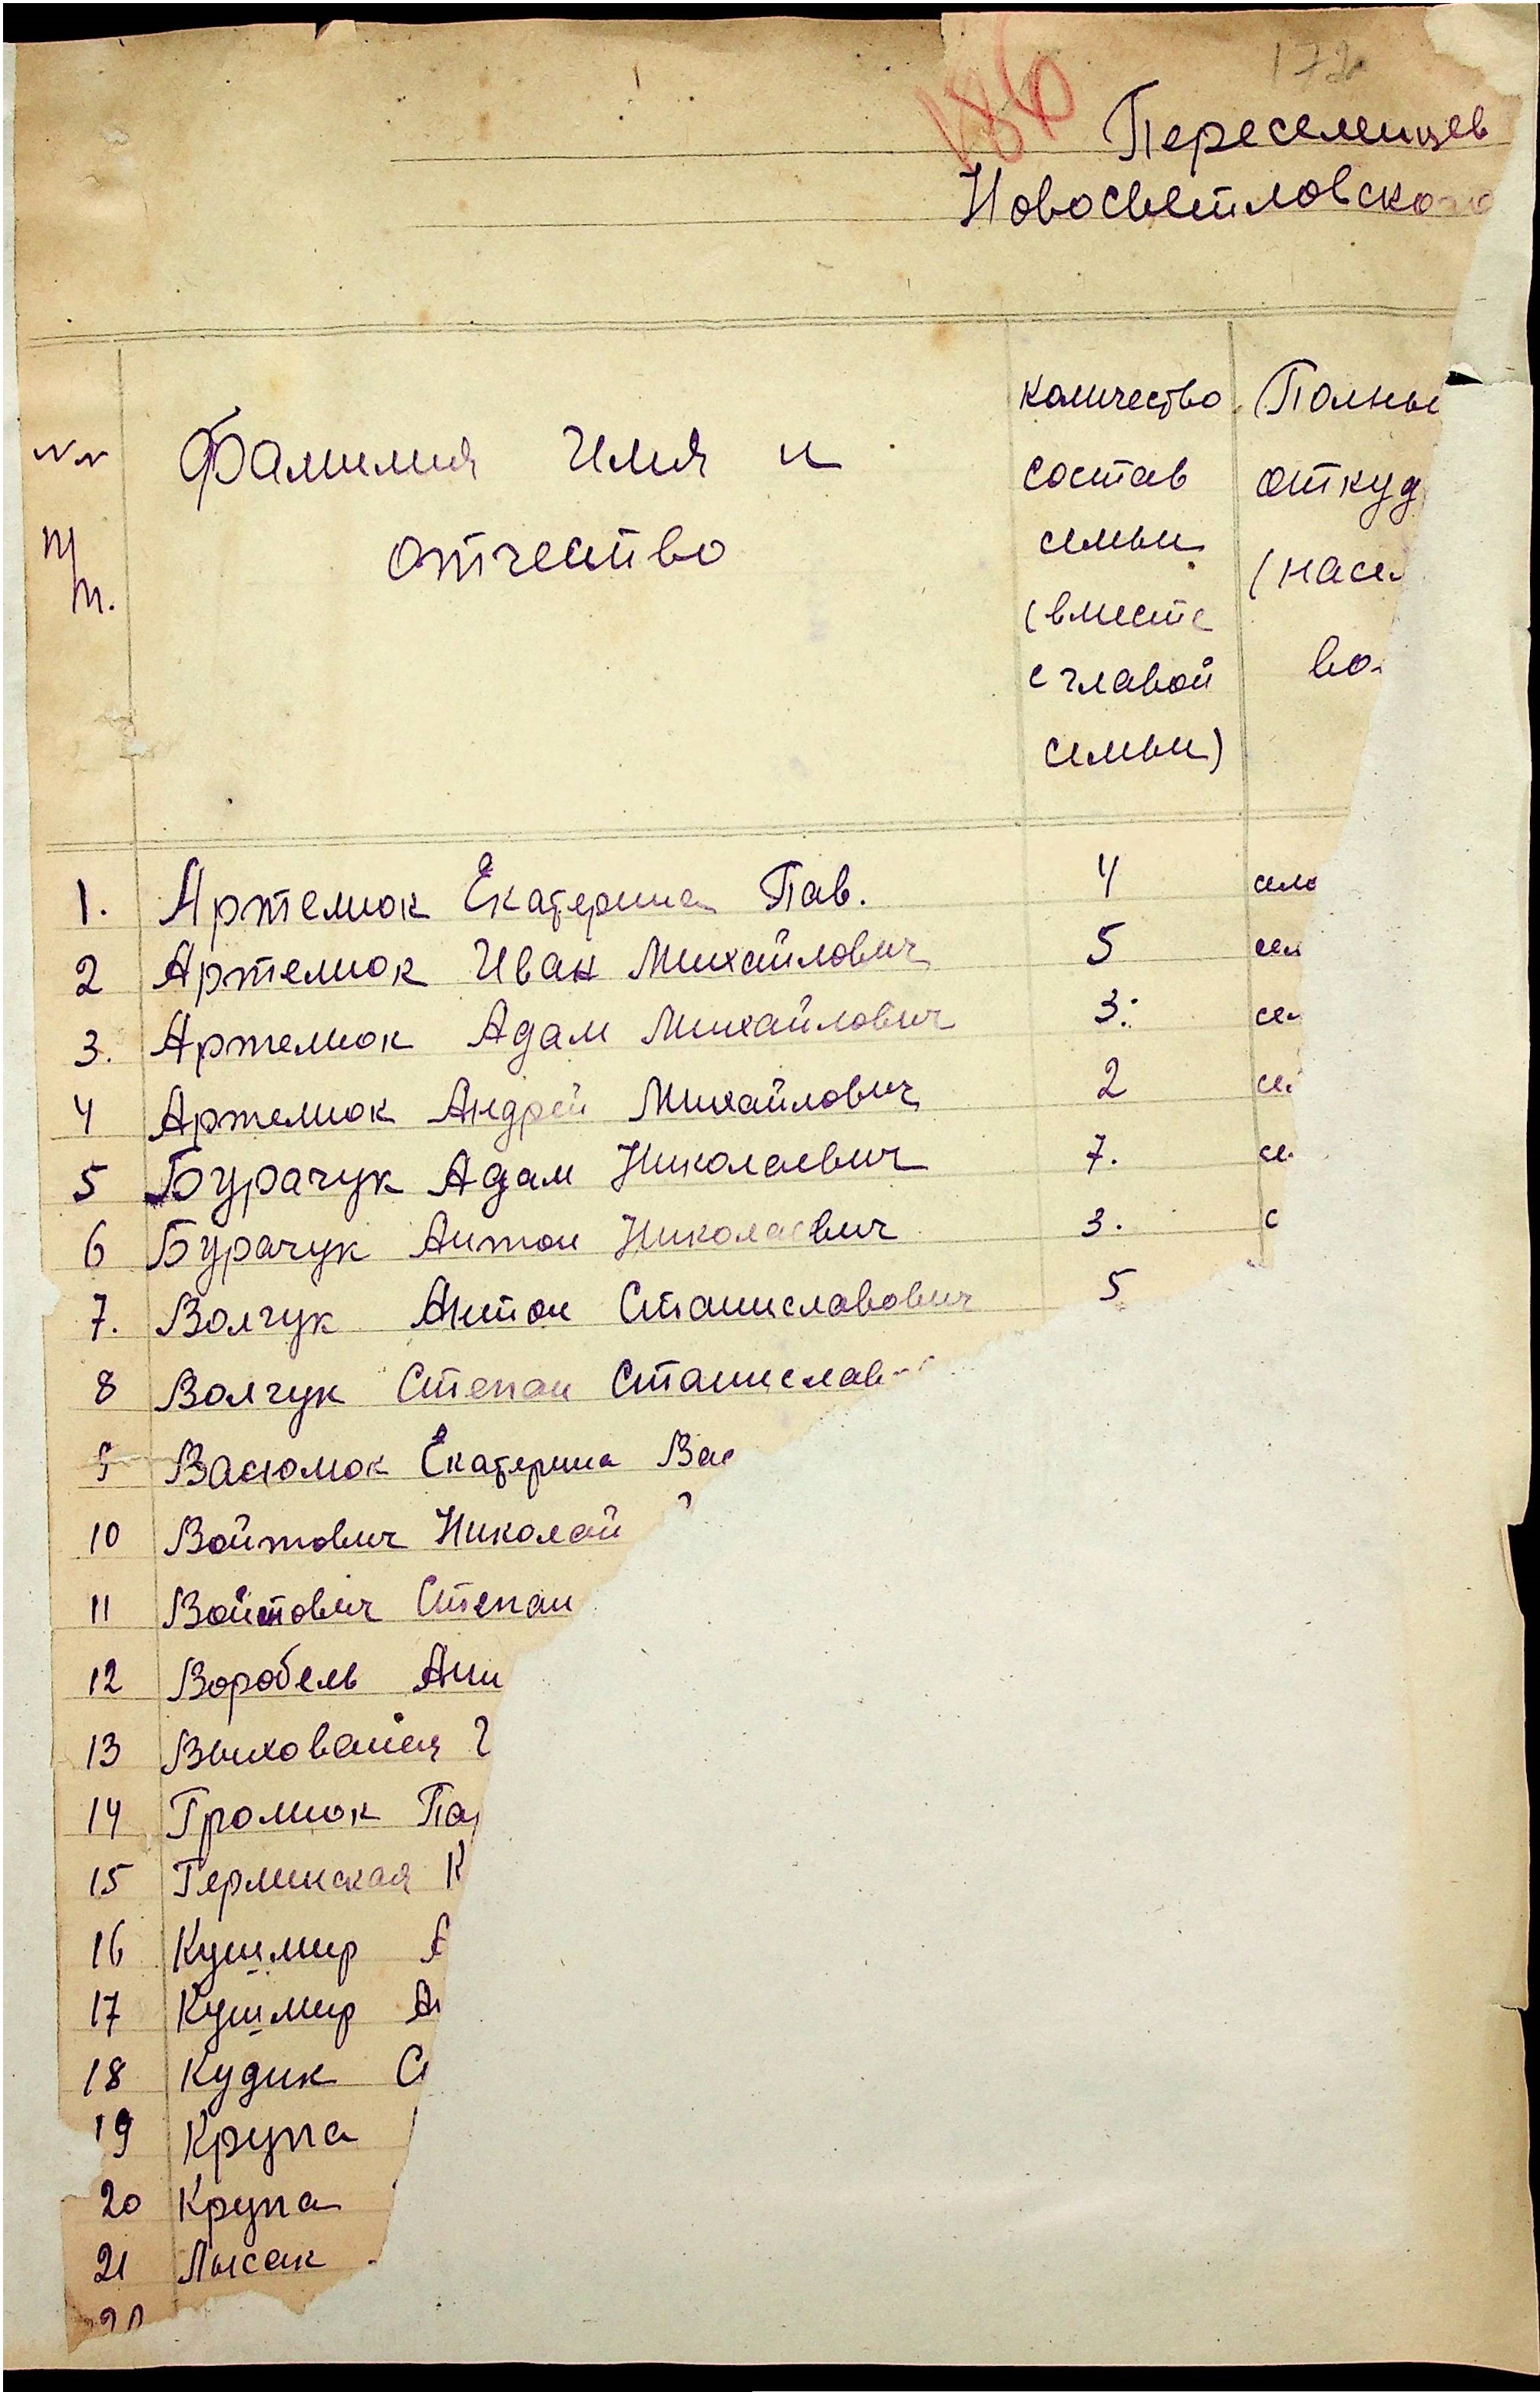 186
172
Переселенцев
Новосветловского
NN
п
п.
Фамилия Имя и
отчество
количество
состав
семьи
(вместе
с главой
семьи)
Полны
откуд
(насел
во
1. Артемюк Екатерина Пав. 4 село
2 Артемюк Иван Михайлович 5 сел
3. Артемюк Адам Михайлович 3. се
4 Артемюк Андрей Михайлович 2 се
5 Бурачук Адам Николаевич 7. се
6 Бурачук Антон Николаевич 3. с
7. Волчук Антон Станиславович 5
8 Волчук Степан Станислав
9 Васюмок Екатерина Вас
10 Войтович Николай
11 Войтович Степан
12 Воробель Анн
13 Выхованец
14 Громюк Па
15 Герлинская К
16 Кушмир А
17 Кушмир Ан
18 Кудик С
19 Крупа
20 Крупа
21 Лысак